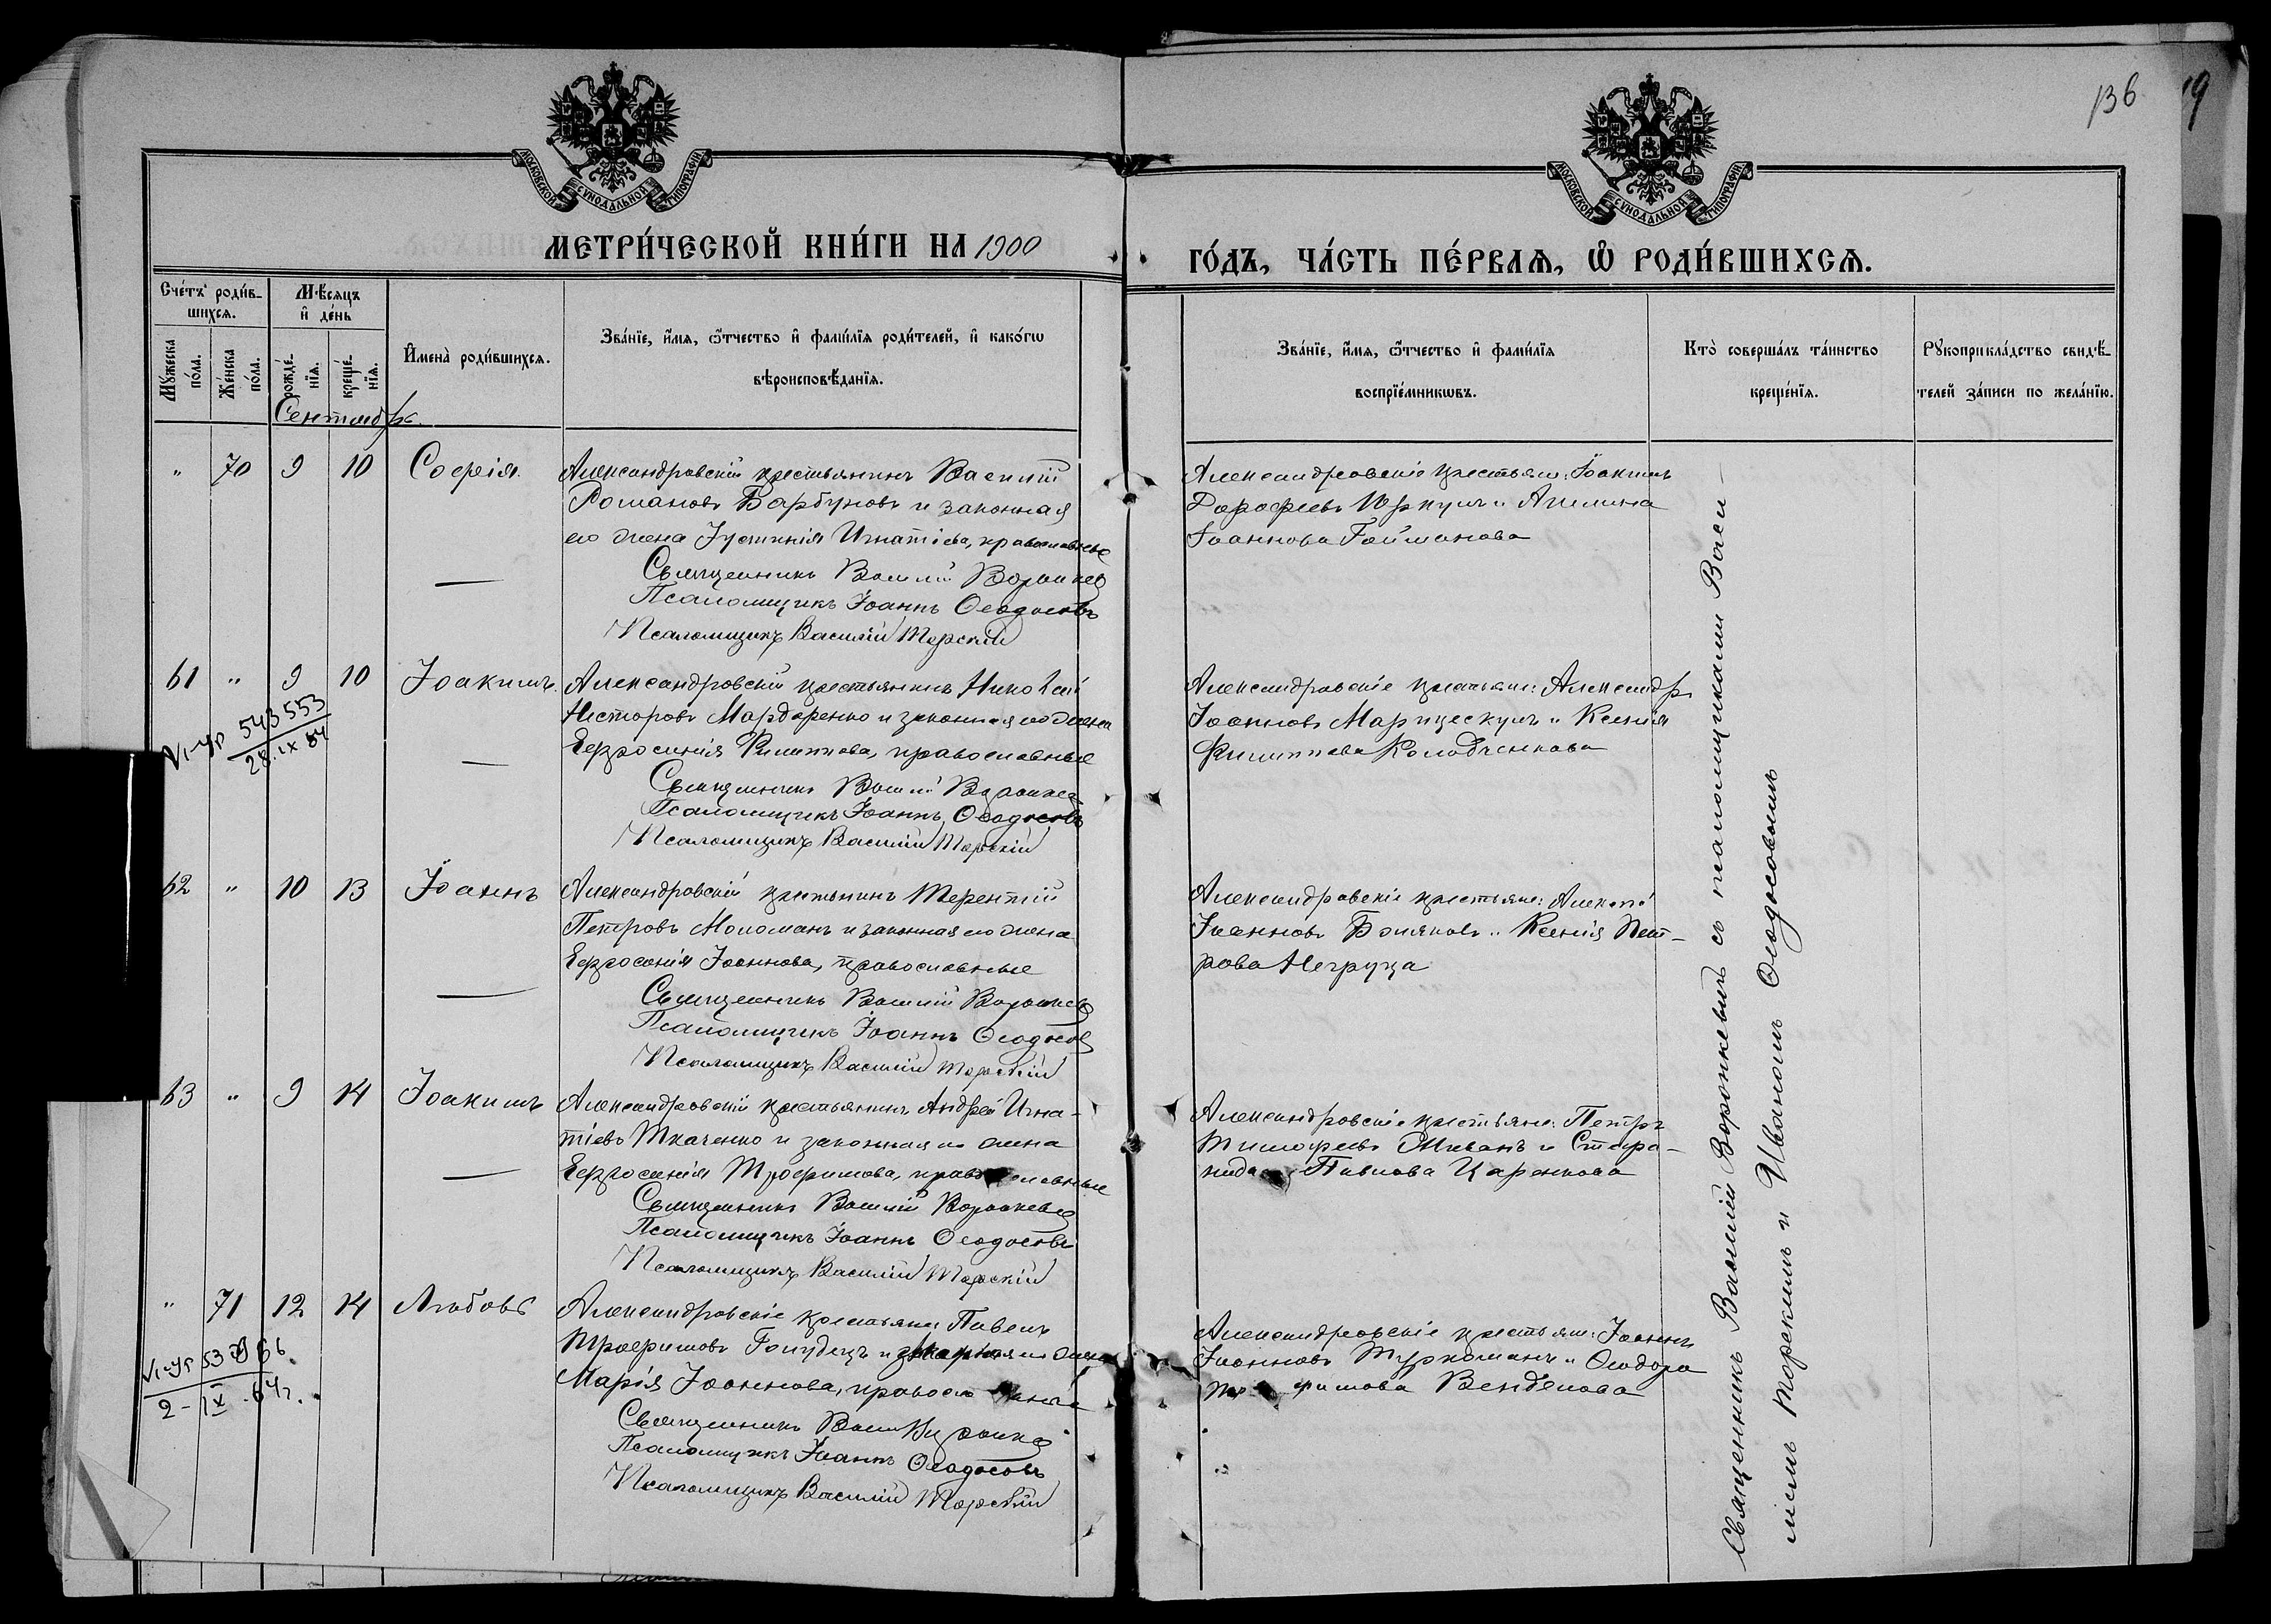 136
19
МОСКОВСКОЙ СУНОДАЛЬНОЙ ТИПОГРАФІИ
МОСКОВСКОЙ СУНОДАЛЬНОЙ ТИПОГРАФІИ
МЕТРИ́ЧЕСКОЙ КНИ́ГИ НА 1900
ГО́ДЪ, ЧА́СТЬ ПЕ́РВАѦ, Ѡ҆ РОДИ́ВШИХСѦ.
Сче́тъ роди́в-
шихсѧ.
Мꙋжеска
по́ла.
Же́нска
по́ла.
Мѣ́сяцъ
и҆ де́нь
рожде́-
нїѧ.
креще́-
нїѧ.
Сентябрь
И҆мена̀ роди́вшихсѧ.
Зва́нїе, и҆́мѧ, ѻ҆́тчество и҆ фами́лїѧ роди́телей, и҆ како́гѡ
вѣроисповѣ́данїѧ.
Зва́нїе, и҆́мѧ, ѻ҆́тчество и҆ фами́лїѧ
воспрїе́мникѡвъ.
Кто̀ соверша́лъ та́инство
креще́нїѧ.
Рꙋкоприкла́дство свидѣ́-
телей за́писи по жела́нїю.
" 70 9 10 Софія
Александровскій крестьянинъ Василій
Романовъ Барбуновъ и законная
его жена Іустинія Игнатіева, православные
Священникъ Василій Воронкевъ
Псаломщикъ Іоаннъ Ѳеодосовъ
Псаломщикъ Василій Торскій
Александровскіе крестьяне: Іоакимъ
Дорофеевъ Юркулъ и Акилина
Іоаннова Гойманова
61 " 9 10 Іоакимъ
VI-ур 543553
28.IX 54
Александровскій крестьянинъ Николай
Несторовъ Мардаренко и законная его жена
Евфросинія Филиппова, православные
Священникъ Василій Воронкев
Псаломщикъ Іоаннъ Ѳеодосовъ
Псаломщикъ Василій Торскій
Александровскіе крестьяне: Александръ
Іоанновъ Марицескулъ и Ксенія
Филиппова Колодченкова
62 " 10 13 Іоаннъ
Александровскій крестьянинъ Терентій
Петровъ Моломанъ и законная его жена
Евфросинія Іоаннова, православные
Священникъ Василій Воронкев
Псаломщикъ Іоаннъ Ѳеодосов
Псаломщикъ Василій Торскій
Александровскіе крестьяне: Алексѣй
Іоанновъ Боляковъ и Ксенія Пет-
рова Негруца
63 " 9 14 Іоакимъ
Александровскій крестьянинъ Андрей Игна-
тіевъ Ткаченко и законная его жена
Евфросинія Трофимова, православные
Священникъ Василій Воронкев
Псаломщикъ Іоаннъ Ѳеодосовъ
Псаломщикъ Василій Торскій
Александровскіе крестьяне: Петръ
Тимофеевъ Миванъ и Стефа-
нида Павлова Царенкова
" 71 12 14 Любовь
VI-ур
2-IX.64г.
Александровскіе крестьяне Павелъ
Трофимовъ Голубецъ и законная его жена
Марія Іоаннова, православные
Священникъ Василій Воронкев
Псаломщикъ Іоаннъ Ѳеодосовъ
Псаломщикъ Василій Торскій
Александровскіе крестьяне: Іоаннъ
Іоанновъ Туркоманъ и Ѳеодора
Трофимова Венделова
Священникъ Василій Воронкевичъ съ псаломщиками Васи-
ліемъ Торскимъ и Иваномъ Ѳеодосовымъ